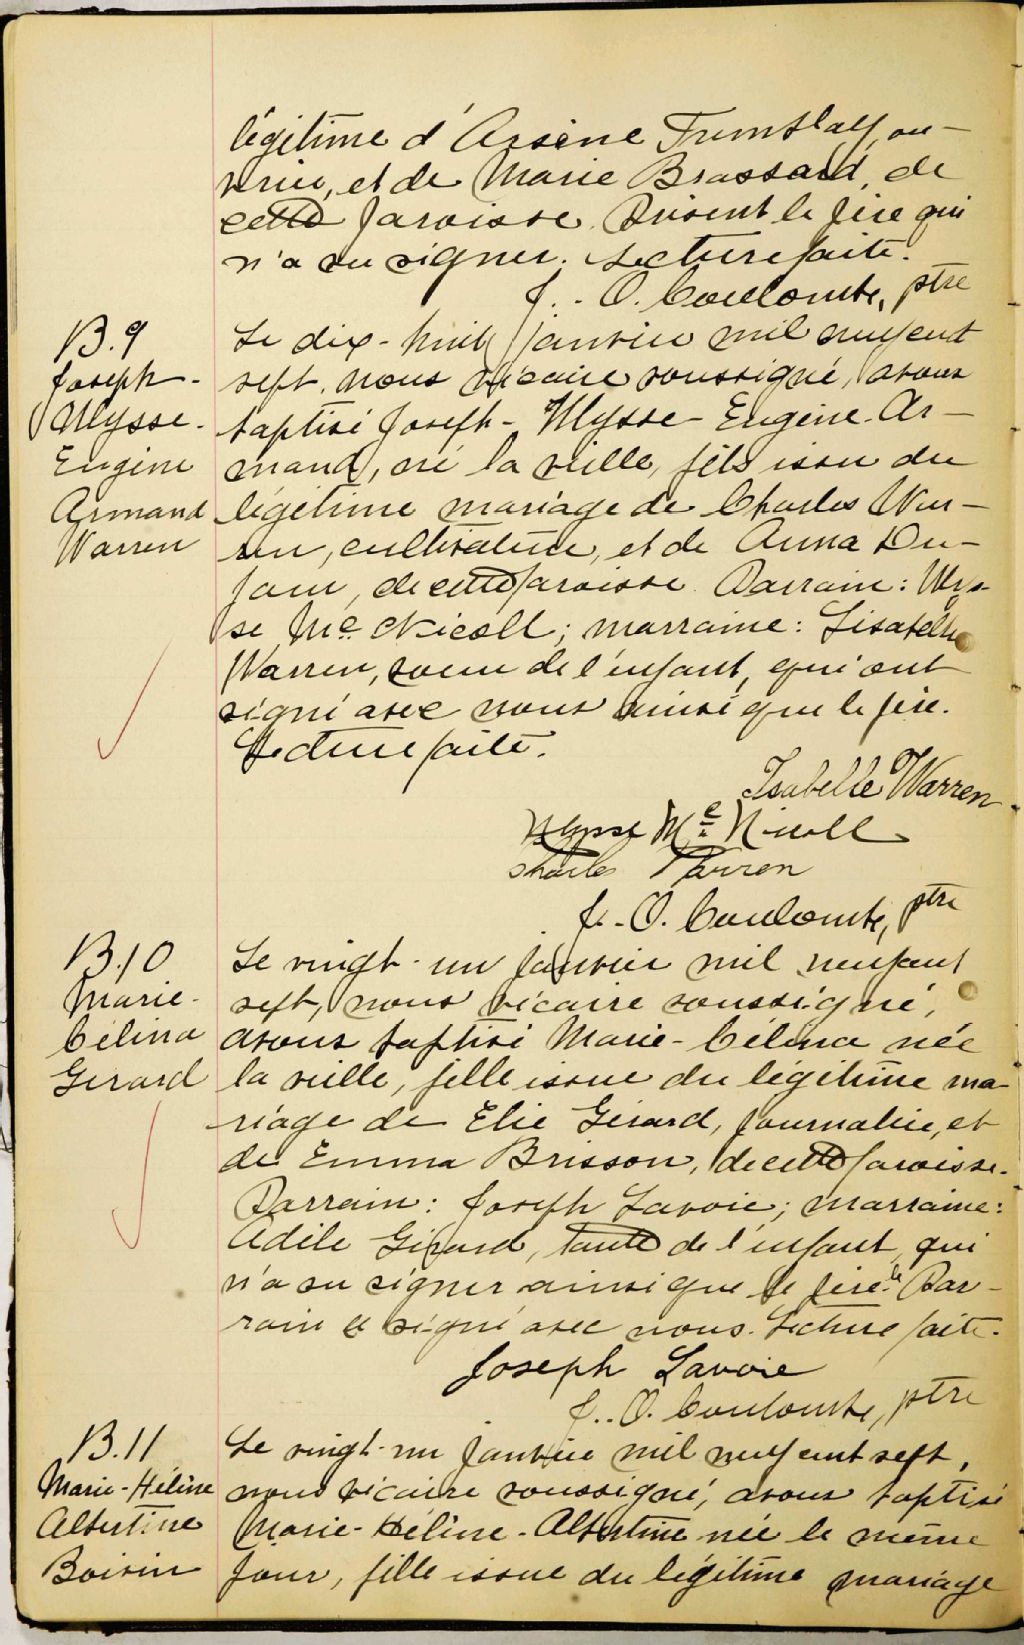 légitime d'Arsène Tremblay, ou-
vrier, et de Marie Brassard, de
cette paroisse. Présent le père qui
n'a su signer. Lecture faite.
J.-O. Coulombe, ptre
B.9
Joseph-
Ulysse-
Eugène
Armand
Warren
Le dix-huit janvier mil neuf cent
sept, nous vicaire soussigné, avons
baptisé Joseph-Ulysse-Eugène-Ar-
mand, né la veille, fils issu du
légitime mariage de Charles War-
ren, cultivateur, et de Anna Du-
four, de cette paroisse. Parrain: Ulys-
se Mc Nicoll; marraine: Lisabelle
Warren, soeur de l'enfant, qui ont
signé avec nous ainsi que le père.
Lecture faite.
Isabelle Warren
Ulysse Mc Nicoll
Charles Warren
J.-O. Coulombe, ptre
B.10
Marie-
Célina
Girard
Le vingt-un janvier mil neuf cent
sept, nous vicaire soussigné,
avons baptisé Marie-Célina née
la veille, fille issue du légitime ma-
riage de Elie Girard, journalier, et
de Emma Brisson, de cette paroisse.
Parrain: Joseph Lavoie; marraine:
Adèle Girard, tante de l'enfant, qui
n'a su signer ainsi que le père. le Par-
rain a signé avec nous. Lecture faite.
Joseph Lavoie
J.-O. Coulombe, ptre
B.11
Marie-Héline
Albertine
Boivin
Le vingt-un janvier mil neuf cent sept,
nous vicaire soussigné, avons baptisé
Marie-Héline-Albertine née le même
jour, fille issue du légitime mariage